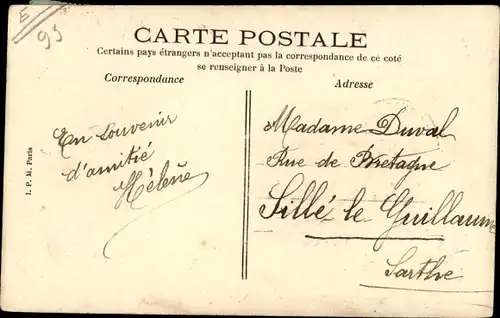 E
93
CARTE POSTALE
Certains pays étrangers n'acceptant pas la correspondance de ce coté
se renseigner à la Poste
Correspondance
Adresse
En souvenir
d'amitié
Hélène
I. P. M. Paris
Madame Duval
Rue de Bretagne
Sillé le Guillaume
Sarthe